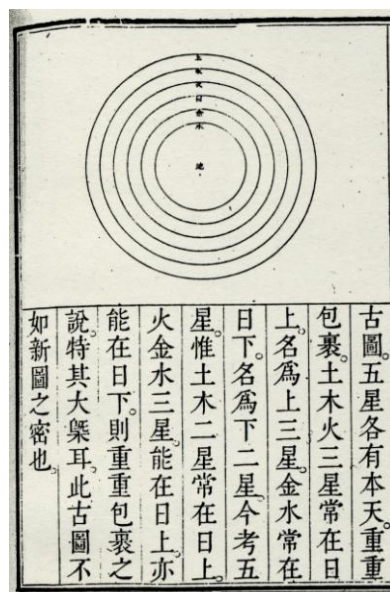 土
木
火
日
金
水
地
古圖。五星各有本天。重重
包裹。土木火三星常在日
上。名爲上三星。金水常在
日下。名爲下二星。今考五
星。惟土木二星常在日上。
火金水三星。能在日上。亦
能在日下。則重重包裹之
說。特其大槩耳。此古圖不
如新圖之密也。